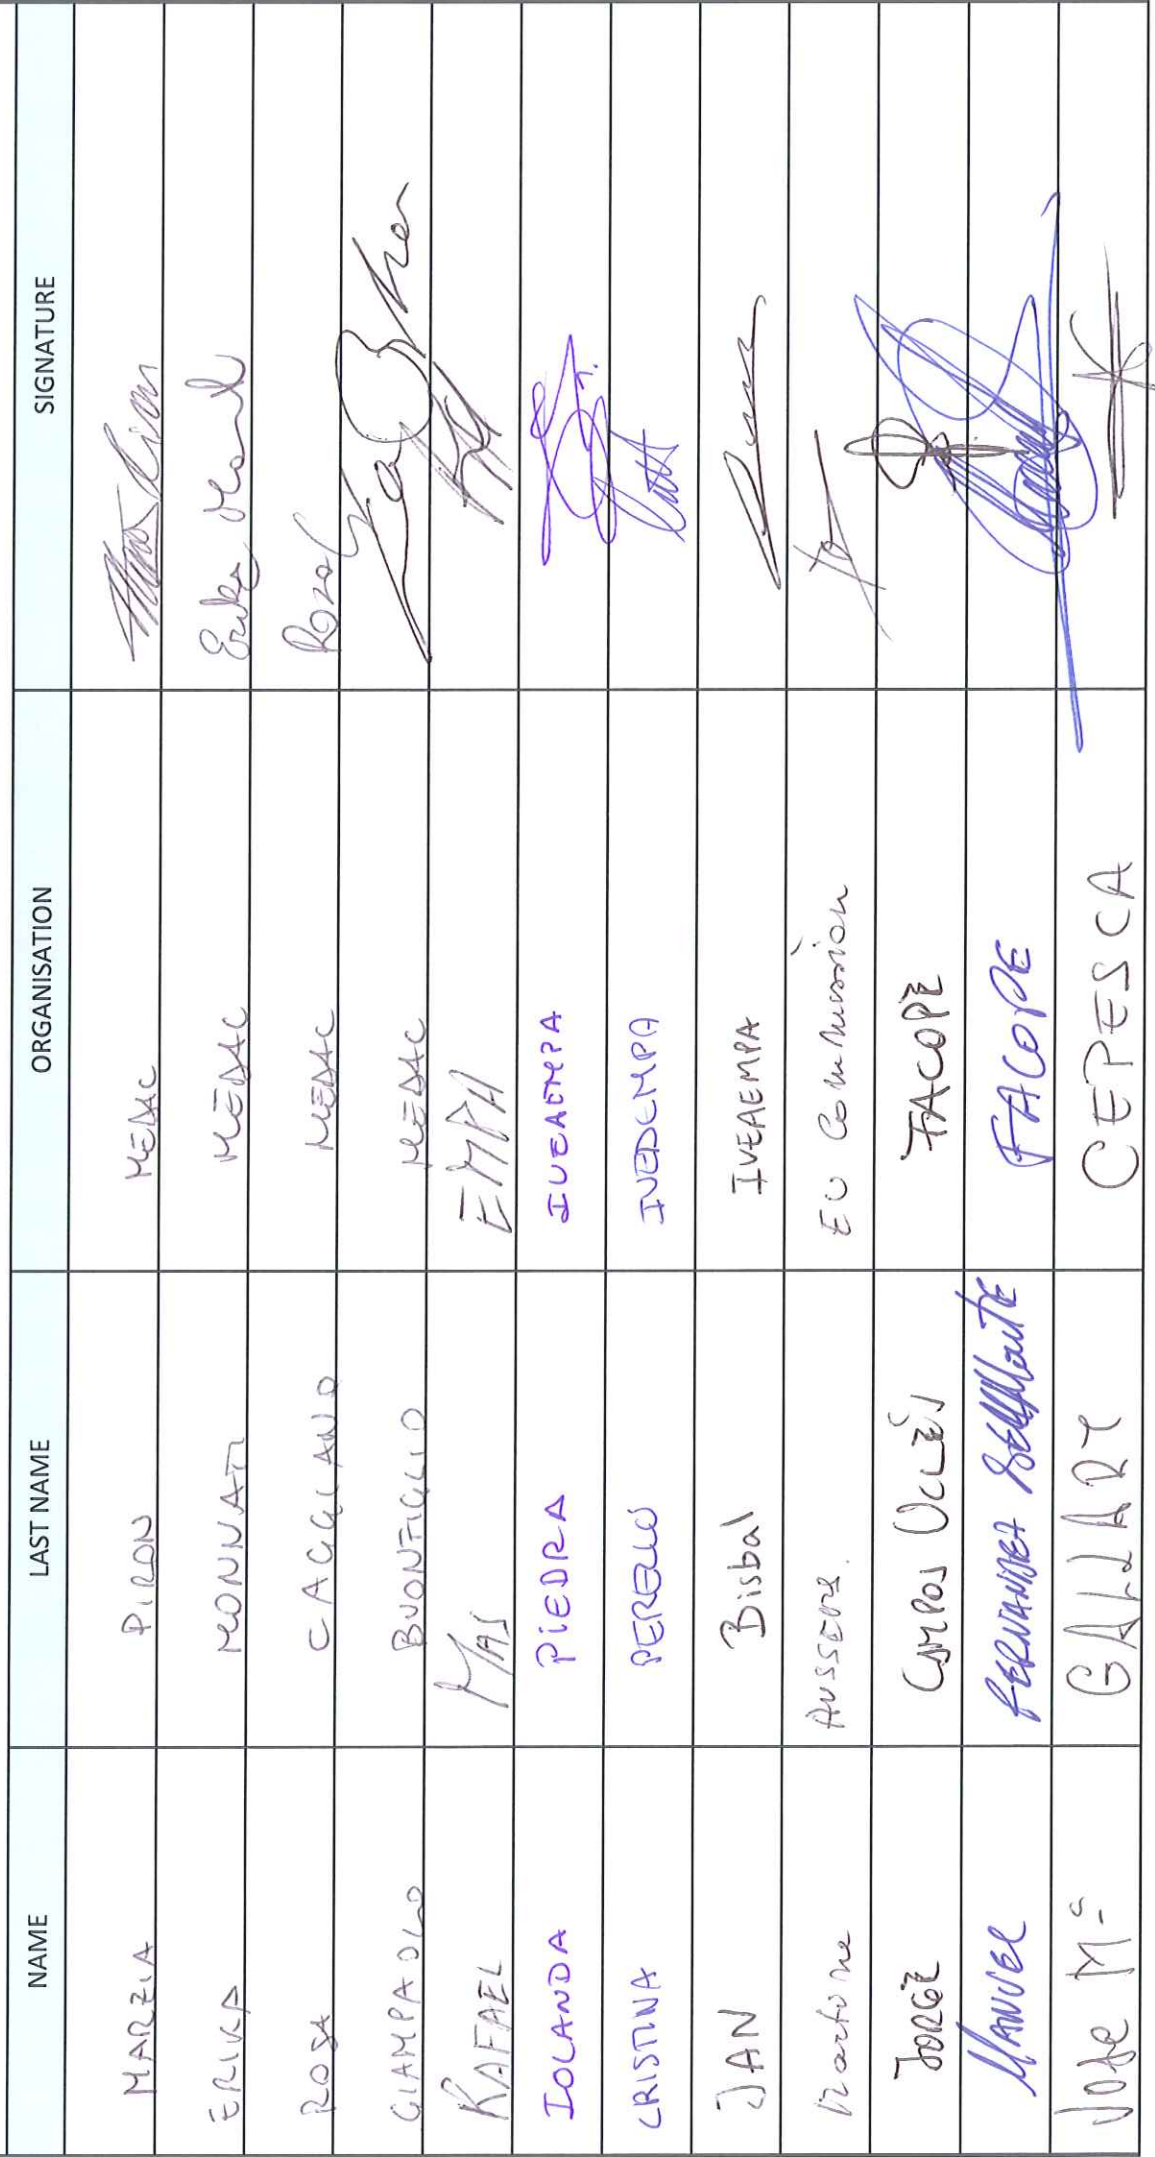 NAME LAST NAME ORGANISATION SIGNATURE
MARZIA PIRON MEDAC
ERIKA MONNATI MEDAC Erika
ROSA CAGGIANO MEDAC Rosa
GIAMPAOLO BUONFIGLIO MEDAC
RAFAEL MAS EMPA
IOLANDA PIEDRA IVEAEMPA
CRISTINA PERELLO IVEAEMPA
JAN Bisbal IVEAEMPA
EU Commission
JORGE CAMPOS UCLÉS FACOPE
MANUEL FERNANDEZ BELMONTE FACOPE
JOSE Mª GALLART CEPESCA